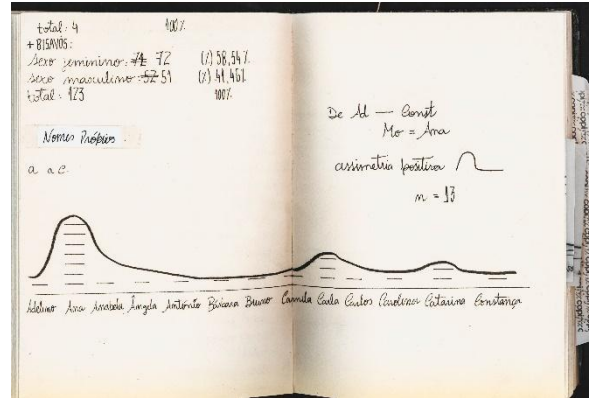 total: 4 100%
+ BISAVÓS:
Sexo feminino: 71 72 (%) 58,54%
sexo masculino: 52 51 (%) 41,46%
total: 123 100%
Nomes Próprios.
a a C.
De Ad — Const
Mo = Ana
assimetria positiva
n = 13
Adelino Ana Anabela Ângela António Bárbara Bruno Camila Carla Carlos Carolina Catarina Constança